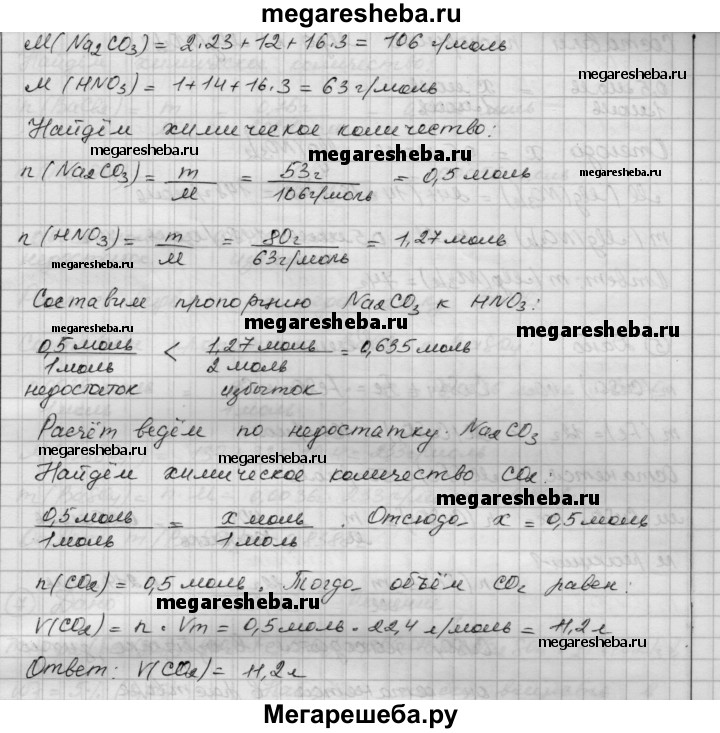 megaresheba.ru
M(Na2CO3) = 2·23+12+16·3 = 106 г/моль
megaresheba.ru
M(HNO3) = 1+14+16·3 = 63 г/моль
Найдём химическое количество:
megaresheba.ru megaresheba.ru
n(Na2CO3) = m/M = 53г/106г/моль = 0,5 моль
megaresheba.ru
n(HNO3) = m/M = 80г/63г/моль = 1,27 моль
megaresheba.ru megaresheba.ru
Составим пропорцию Na2CO3 к HNO3:
megaresheba.ru megaresheba.ru megaresheba.ru
0,5 моль/1 моль < 1,27 моль/2 моль = 0,635 моль
недостаток избыток
megaresheba.ru
Расчёт ведём по недостатку: Na2CO3
megaresheba.ru megaresheba.ru
Найдём химическое количество CO2:
megaresheba.ru
0,5 моль/1 моль = x моль/1 моль. Отсюда x = 0,5 моль
megaresheba.ru megaresheba.ru
n(CO2) = 0,5 моль. Тогда объём CO2 равен:
megaresheba.ru
V(CO2) = n · Vm = 0,5 моль · 22,4 л/моль = 11,2 л
megaresheba.ru
Ответ: V(CO2) = 11,2 л
megaresheba.ru
Мегарешеба.ру